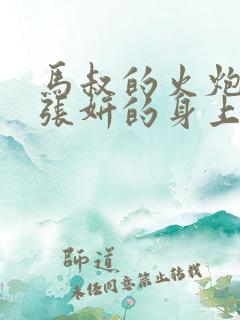 馬叔的火炮
張妍的身上
師道
未经同意禁止转载